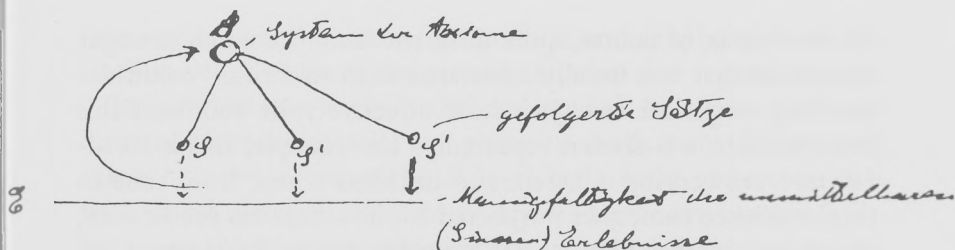 A
System der Axiome
S S' S'
gefolgerte Sätze
E
Mannigfaltigkeit der unmittelbaren
(Sinnes) Erlebnisse